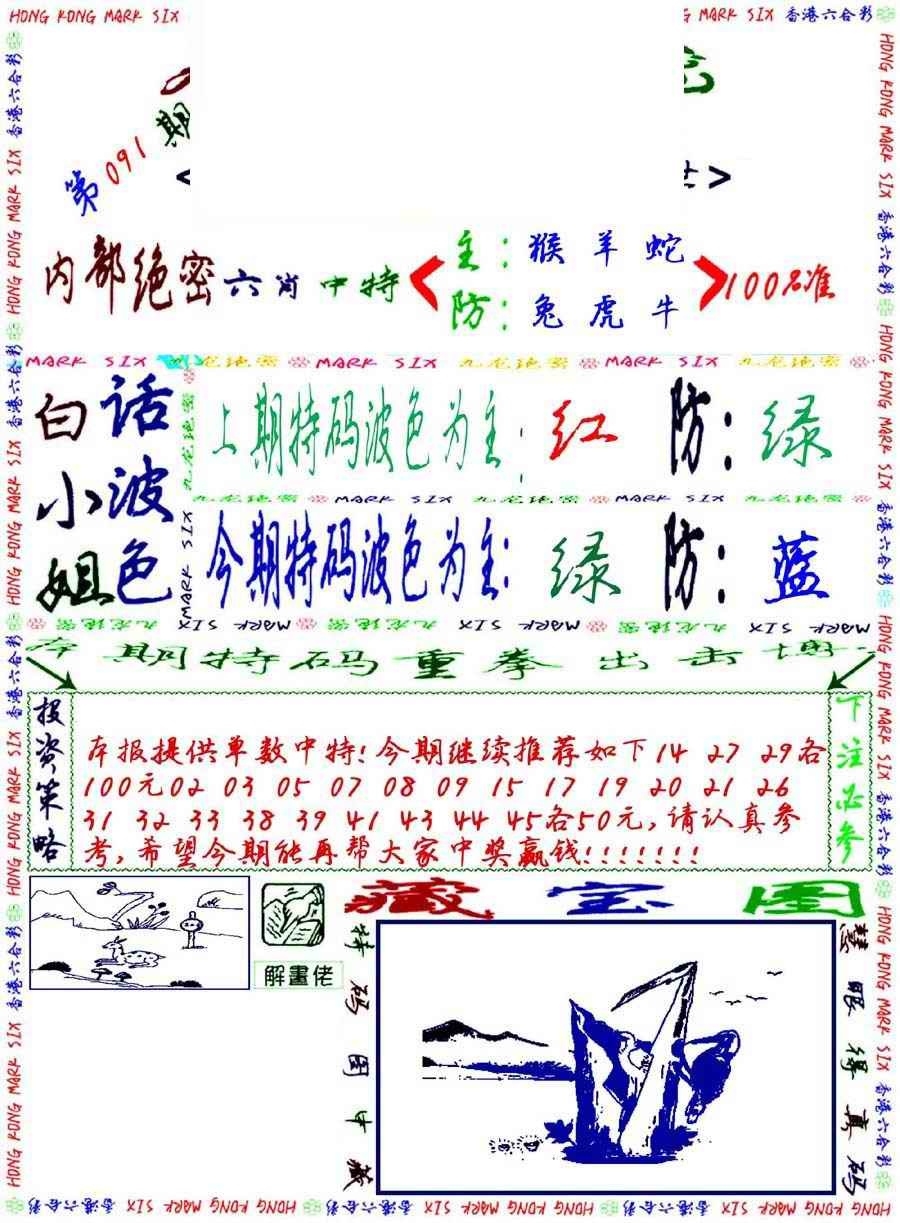 HONG KONG MARK SIX
MARK SIX 香港六合彩
第091期
内部绝密六肖中特
主: 猴 羊 蛇
防: 兔 虎 牛
100%准
MARK SIX 九龙绝密 MARK SIX 九龙绝密 MARK SIX 九龙绝密
白话
小波
姐色
上期特码波色为主: 红 防: 绿
九龙绝密 MARK SIX 九龙绝密 MARK SIX
今期特码波色为主: 绿 防: 蓝
九龙绝密 MARK SIX MARK SIX 九龙绝密 MARK SIX
期特码重拳出击
投资策略
本报提供单数中特!今期继续推荐如下14 27 29各
100元02 03 05 07 08 09 15 17 19 20 21 26
31 32 33 38 39 41 43 44 45各50元,请认真参
考,希望今期能再帮大家中奖赢钱!!!!!!!
下注必参
解畫佬
藏宝图
特码图中藏
慧眼得真码
HONG KONG MARK SIX 香港六合彩